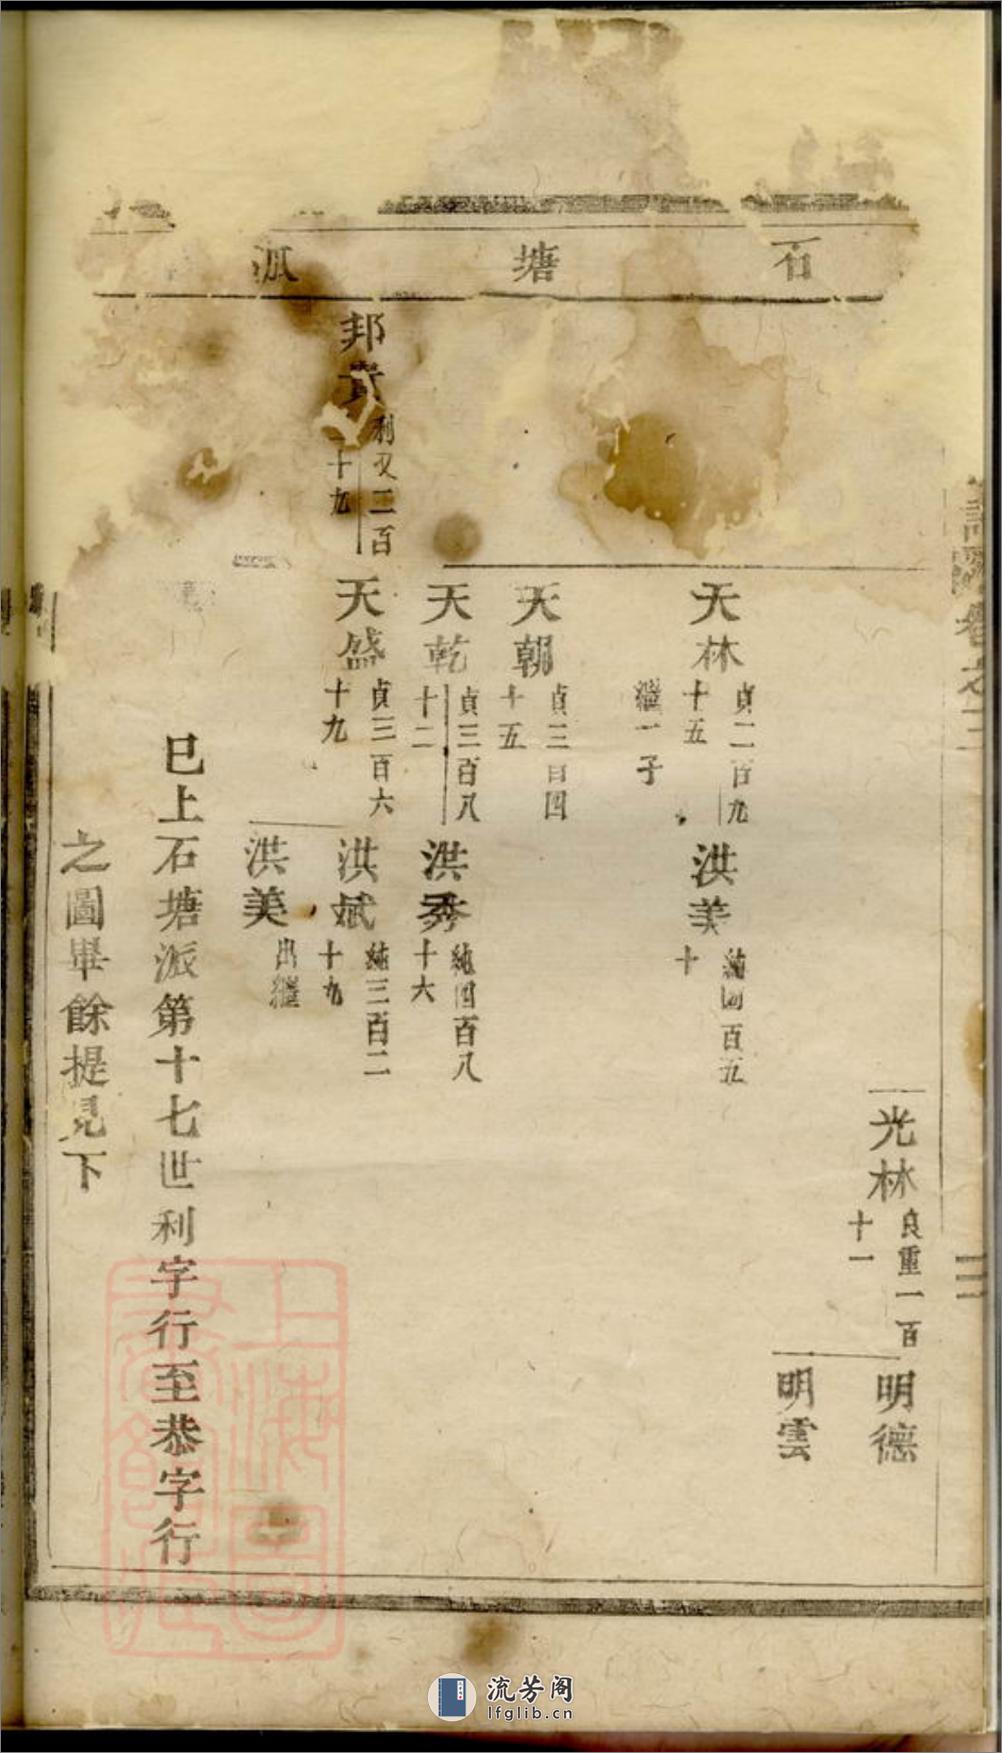 石塘派
光林 良重一百十一
明德
明雲
天林 貞二百九十五 繼一子
洪美 純四百五十
天朝 貞三百四十五
天乾 貞三百八十二
洪秀 純四百八十六
邦 利 二百 十九
天盛 貞三百六十九
洪斌 純三百二十九
洪美 出繼
巳上石塘派第十七世利字行至恭字行
之圖畢餘提見下
卷之三
上海圖書館藏
流芳阁
lfglib.cn